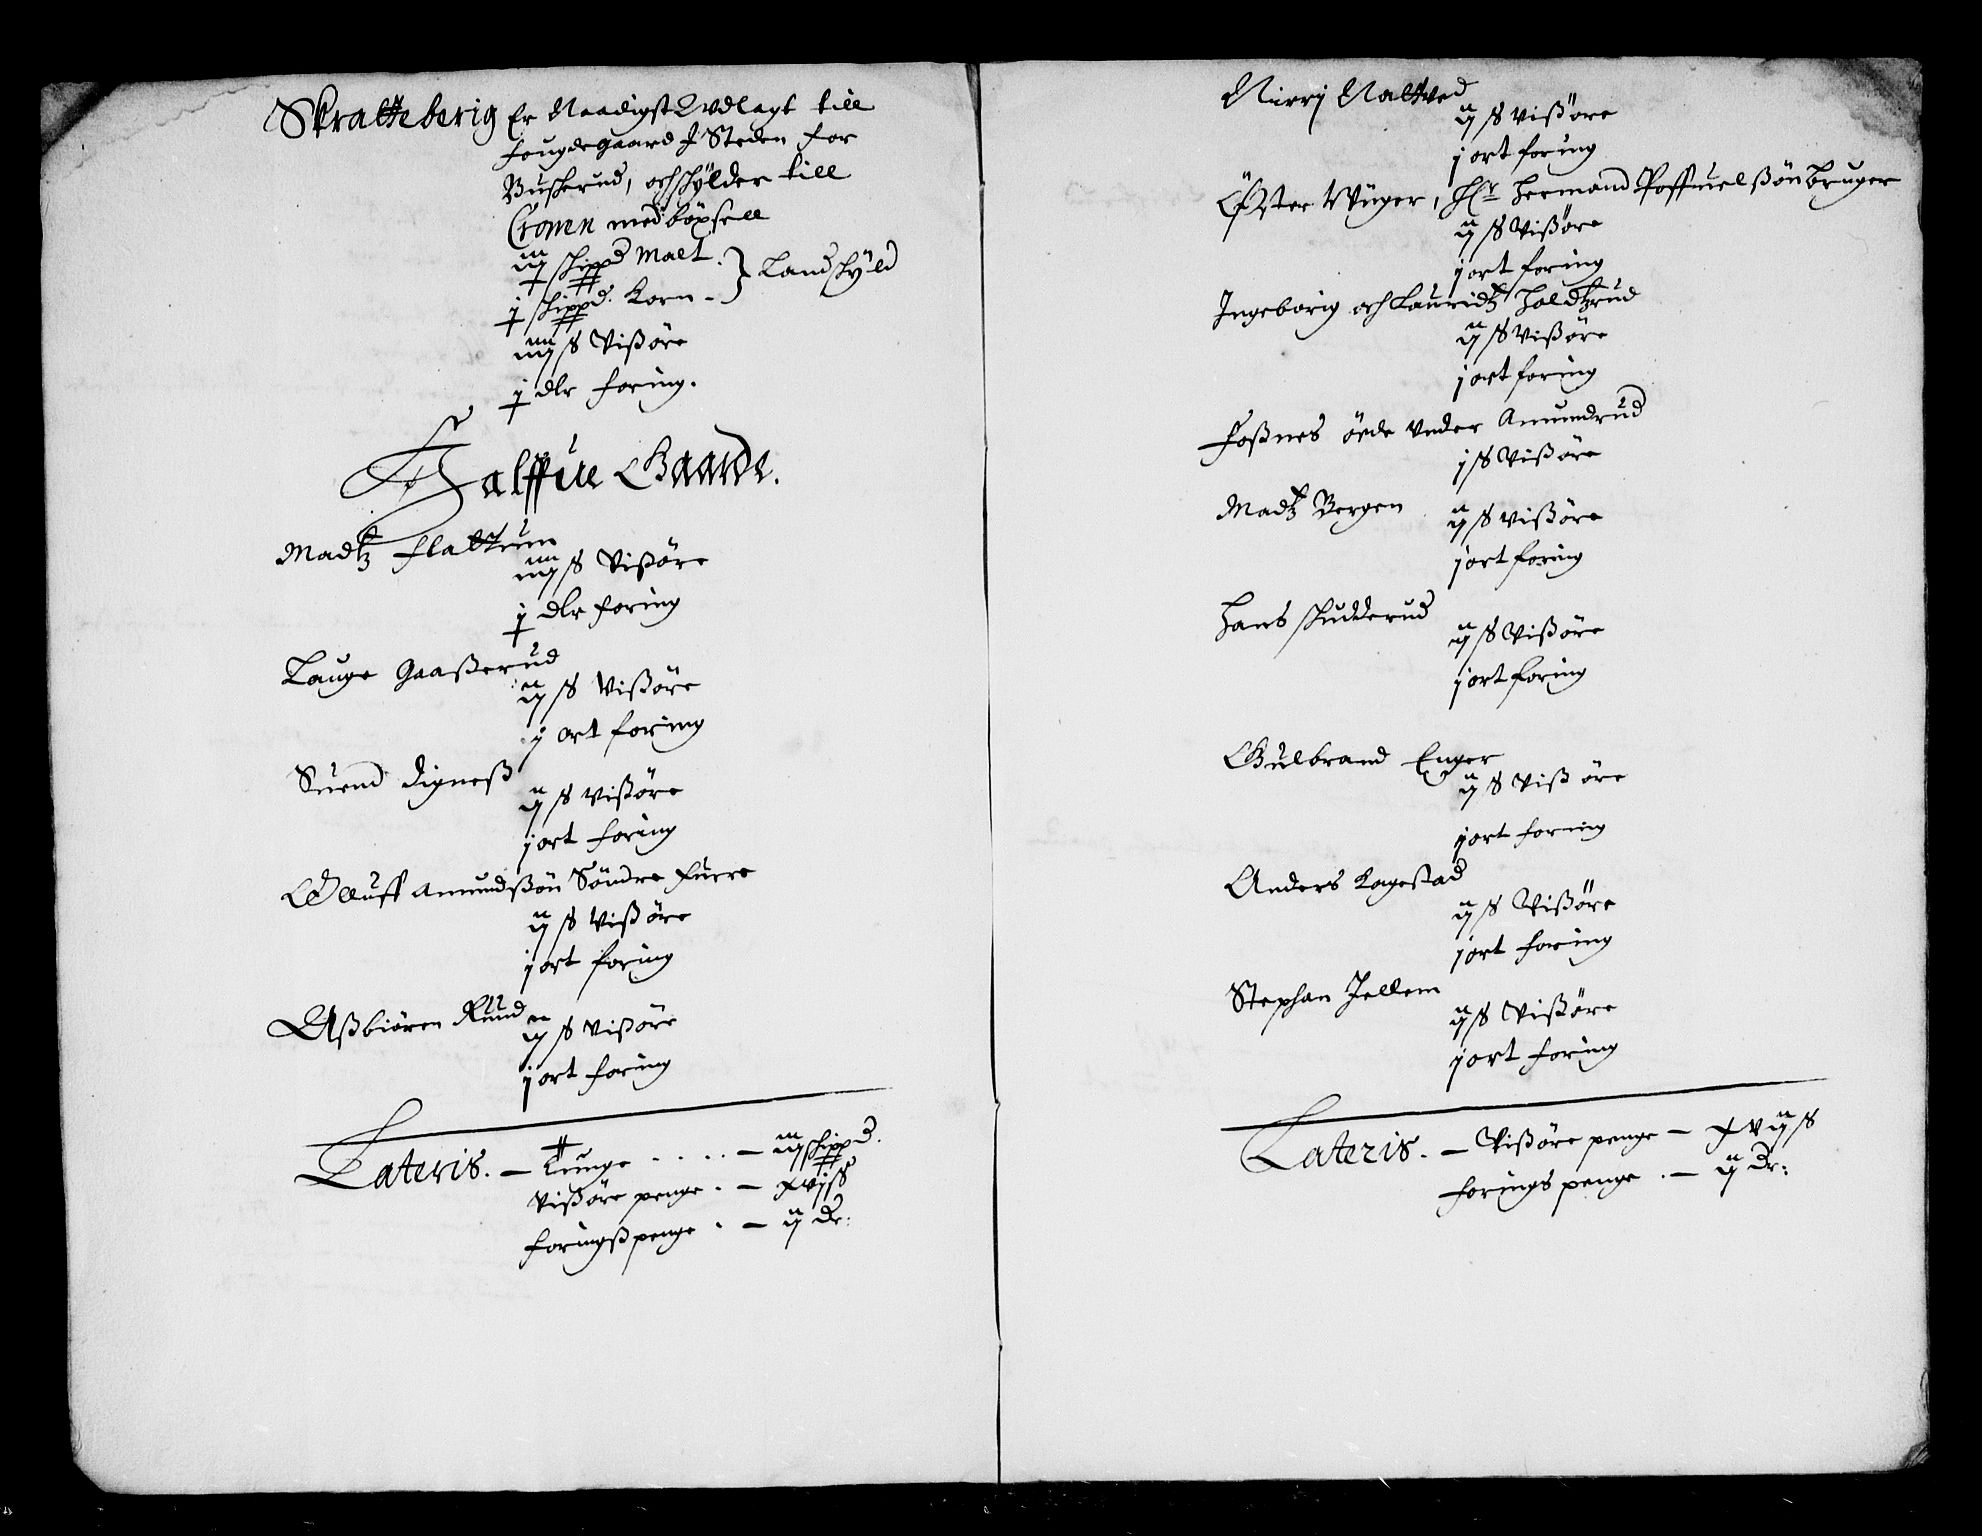 Skratteberig Er Naadigst Vdlagt till
fougdegaard J Steden for
Buskerud, och skÿlder till
Cronen med böxsell
iij skippd Malt. } Landskÿld
j skippd. Korn -
iiij ß Vißöre
j dlr foring.
Halffue Gaarde.
Madtz Flattum
iiij ß Vißöre
j dlr foring
Lauge Gaaßerud
ij ß Vißöre
j ort foring
Suend Digneß
ij ß Vißöre
j ort foring
Olluff Amundßön Söndre Furre
ij ß Vißöre
j ort foring
Aßbiören Ruud
ij ß Vißöre
j ort foring
Lateris. - Tunge . . . . - iij skippd.
Vißöre penge . - xvj ß
foringß penge . - ij Dr:
Nirrj Nattved
ij ß Vißöre
j ort foring
Öster Wÿger, Hr Hermand Poffuelßön bruger
ij ß Vißöre
j ort foring
Ingeborig och Lauridtz Holdtzrud
ij ß Vißöre
j ort foring
Foßnes öede vnder Amundrud
j ß Vißöre
Madtz Bergen
ij ß Vißöre
j ort foring
Hans Skudderud
ij ß Vißöre
j ort foring
Gulbrand Enger
ij ß Vißöre
j ort foring
Anders Kagestad
ij ß Vißöre
j ort foring
Stephan Jellem
ij ß Vißöre
j ort foring
Lateris. - Vißöre penge - xvij ß
forings penge . - ij Dr: